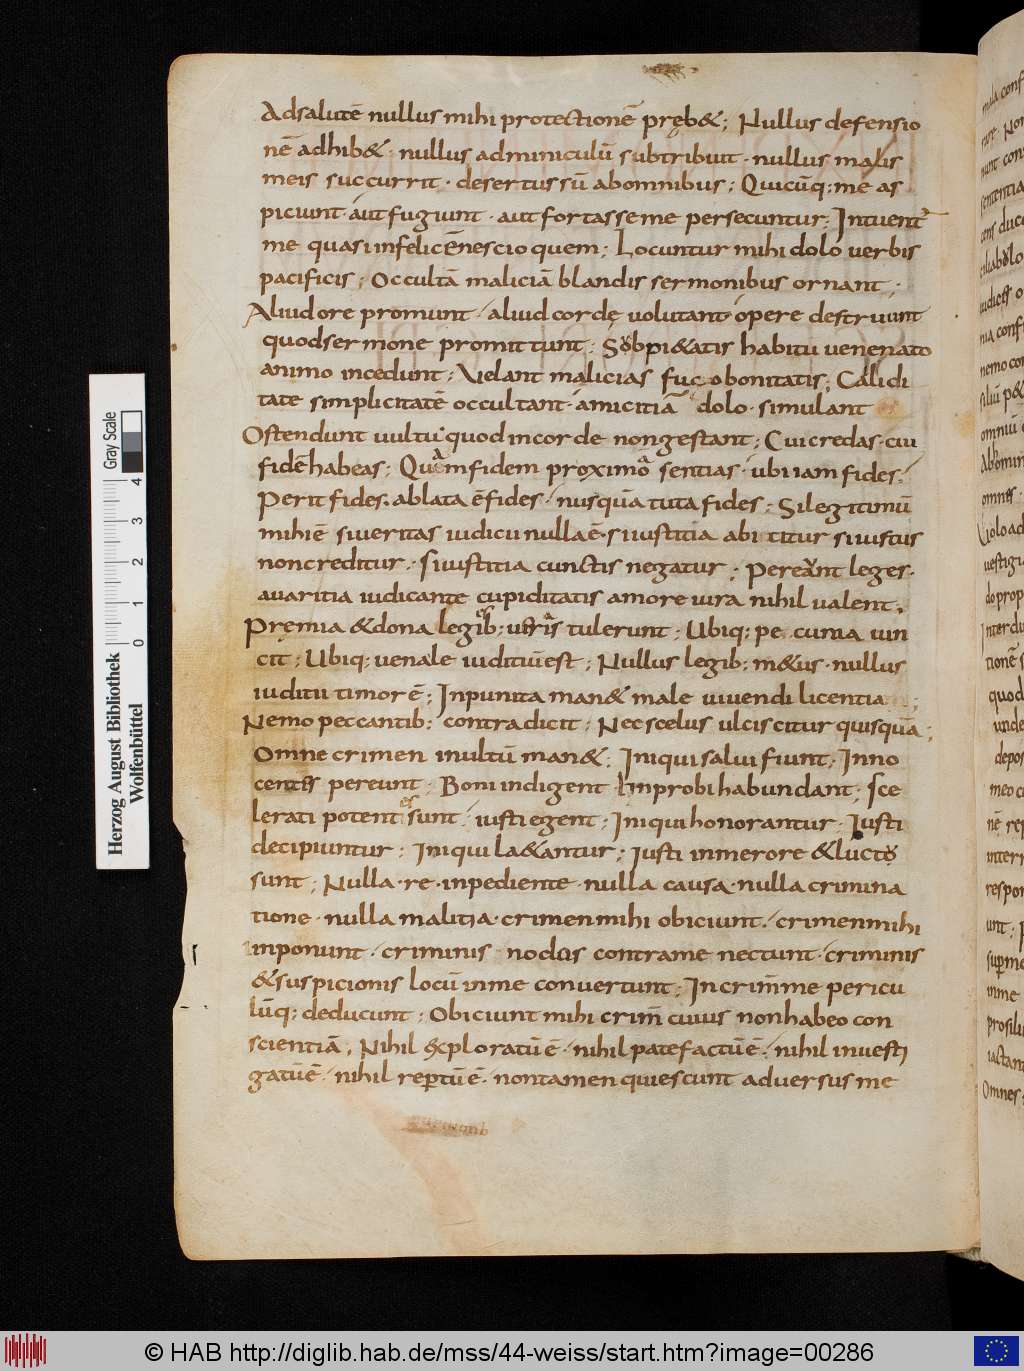 Adsalutē nullus mihi protectionē pręb&; Nullus defensio
nē adhib&· nullus adminiculū subtribuit· nullus malis
meis succurrit· desertussū abomnibus; Quicūq; me as
piciunt· aut fugiunt· aut fortasse me persecuntur; Intuent̄
me quasi infelicē nescio quem; Locuntur mihi dolo verbis
pacificis; Occultā maliciā blandis sermonibus ornant;
Aliud ore promunt· aliud cordę volutant· opere destruunt
quod sermone promittunt; Sub pi&atis habitu venenato
animo incedunt; Velant malicias fuco bonitatis; Calidi
tate simplicitatē occultant· amicitiā dolo simulant
Ostendunt vultu quod in corde non gestant; Cui credas· cui
fidē habeas; Quam fidem proximo sentias· ubi iam fides;
Perit fides· ablata ē fides· nusquā tuta fides; Si legitimū
mihi ē si veritas iudicii nulla ē· si iustitia abititur si iustus
non creditur· si iustitia cunctis negatur; Pereant leges·
avaritia iudicante cupiditatis amore iura nihil valent·
Premia & dona legib; vires tulerunt; Ubiq; pecunia vin
cit; Ubiq; venale iuditiū est; Nullus legib; m&us· nullus
iuditii timor ē; Inpunita man& male vivendi licentia;
Nemo peccantib; contradicit; Nec scelus ulciscitur quisquā;
Omne crimen inultū man&; Iniqui salvi fiunt; Inno
centes pereunt; Boni indigent improbi habundant; Sce
lerati potentes sunt; iusti egent; Iniqui honorantur; Iusti
decipiuntur; Iniqui la&antur; Iusti in merore & luctu
sunt; Nulla re inpediente· nulla causa· nulla crimina
tione· nulla malitia· crimen mihi obiciunt· crimen mihi
inponunt· criminis nodos contra me nectunt· criminis
& suspicionis locū in me convertunt; In crimīne pericu
lūq; deducunt; Obiciunt mihi crim̄ cuius non habeo con
scientiā· Nihil exploratū ē· nihil patefactū ē· nihil investi
gatū ē· nihil repertū ē· non tamen quiescunt adversus me
Gray Scale
0 1 2 3 4
Herzog August Bibliothek
Wolfenbüttel
© HAB http://diglib.hab.de/mss/44-weiss/start.htm?image=00286